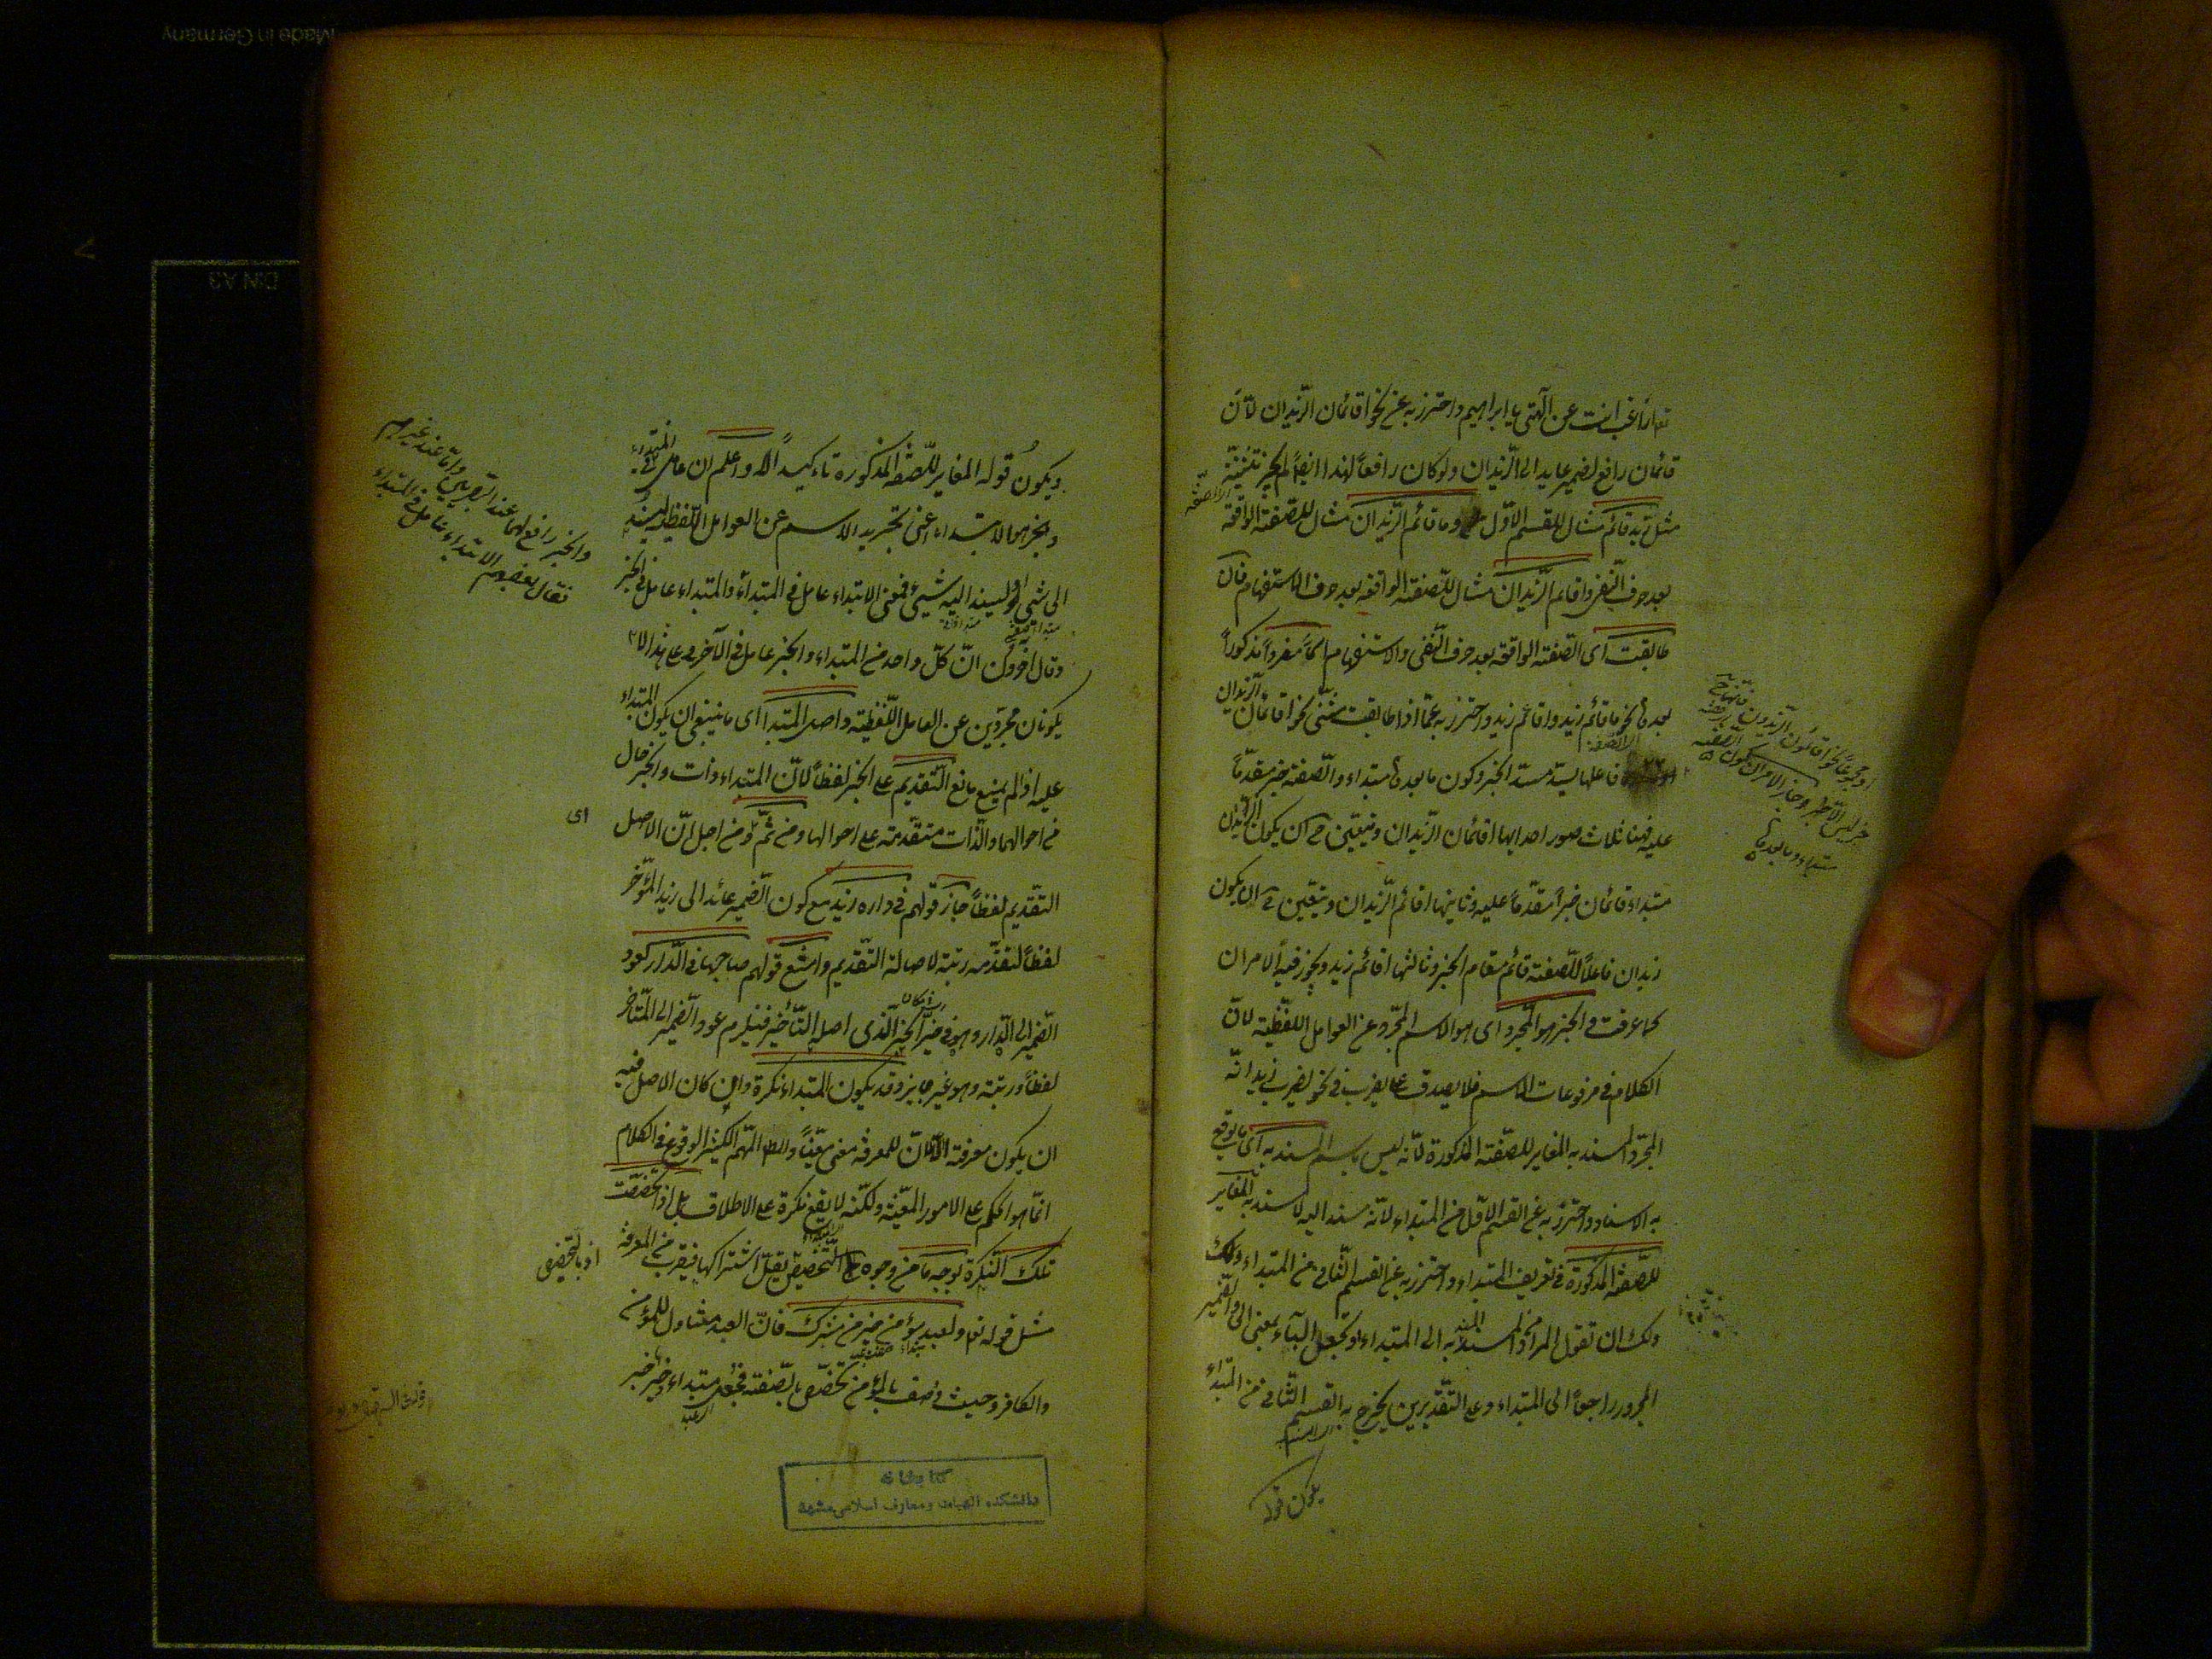 تعالى اراغب انت عن الهتى يا ابراهيم واحترز به عن نحو اقائمان الزيدان لان
قائمان رافع لضمير عايد الى الزيدان ولو كان رافعا لهذا الظاهر لم يجز تثنيته
مثل زيد قائم مثال للقسم الاول وما قائم الزيدان مثال للصفة الواقعة
بعد حرف النفى واقائم الزيدان مثال للصفة الواقعة بعد حرف الاستفهام فان
طابقت اى الصفة الواقعة بعد حرف النفى والاستفهام اسما مفردا مذكورا
بعدها نحو ما قائم زيد واقائم زيد واحترز به عما اذا طابقت مثنى نحو اقائمان الزيدان
فاعلها يسد مسد الخبر وكون ما بعدها مبتداء والصفة خبر مقدما
عليه فهنا ثلاث صور احدايها اقائمان الزيدان ويتعين ح ان يكون الزيدان
مبتداء وقائمان خبرا مقدما عليه وثانيتها اقائم الزيدان ويتعين ح ان يكون
زيدان فاعلا للصفة قائم مقام الخبر وثالثتها اقائم زيد ويجوز فيه الامران
كما عرفت والخبر هو المجرد اى هو الاسم المجرد عن العوامل اللفظية لان
الكلام فى مرفوعات الاسم فلا يصدق على يضرب فى نحو يضرب زيد انه
المجرد المسند به المغاير للصفة المذكورة لانه ليس باسم المسند به اى ما يوقع
به الاسناد واحترز به عن القسم الاول من المبتداء لانه مسند اليه لا مسند به المغاير
للصفة المذكورة فى تعريف المبتداء واحترز به عن القسم الثانى من المبتداء ولك
ولك ان تقول المراد المسند به الى المبتداء او تجعل الباء بمعنى الى والضمير
المجرور راجعا الى المبتداء وعلى التقديرين يخرج به القسم الثانى من المبتداء
يكون قوله
او مجموعا نحو اقائمون الزيدون فانها ح
خبر ليس الا جاز الامران كون الصفة
مبتداء وما بعدها
ويكون قوله المغاير للصفة المذكورة تاكيدا واعلم ان عامل فى المبتداء
والخبر هو الابتداء اعنى تجريد الاسم عن العوامل اللفظية ليسند
الى شئ او ليسند اليه شئ فمعنى الابتداء عامل فى المبتداء والمبتداء عامل فى الخبر
وقال اخرون ان كل واحد من المبتداء والخبر عامل فى الاخر وعلى هذا لا
يكونان مجردين عن العامل اللفظية واصل المبتدا اى ما ينبغى ان يكون المبتداء
عليه اذا لم يمنع مانع التقديم على الخبر لفظا لان المبتداء ذات والخبر حال
من احوالها والذات متقدمة على احوالها ومن ثم ومن اجل ان الاصل
التقديم لفظا جاز قولهم فى داره زيد مع كون الضمير عائد الى زيد المؤخر
لفظا لتقدمه رتبة لاصالة التقديم وامتنع قولهم صاحبها فى الدار كعود
الضمير الى الدار وهو فى حيز الخبر الذى اصله التأخير فيلزم عود الضمير الى المتاخر
لفظا ورتبة وهو غير جايز وقد يكون المبتداء نكرة وان كان الاصل فيه
ان يكون معرفة لان للمعرفة معنى معينا والمهم الكثير الوقوع فى الكلام
انما هو الحكم على الامور المعينة ولكنه لا يقع نكرة على الاطلاق بل اذا تخصصت
تلك النكرة بوجه ما من وجوه التخصيص يقل اشتراكها فيقرب من المعرفة
مثل قوله تعالى ولعبد مؤمن خير من مشرك فان العبد متناول للمؤمن
والكافر وحيث وصف بالمؤمن تخصص بالصفة فجعل مبتداء وخير خبر
والخبر رافع لهما عند البصريين واما عند غيرهم
فقال بعضهم الابتداء عامل فى المبتداء
اى
اذ بالتخصيص
كتابخانه
دانشكده الهيات و معارف اسلامى مشهد
Made in Germany
DIN A3